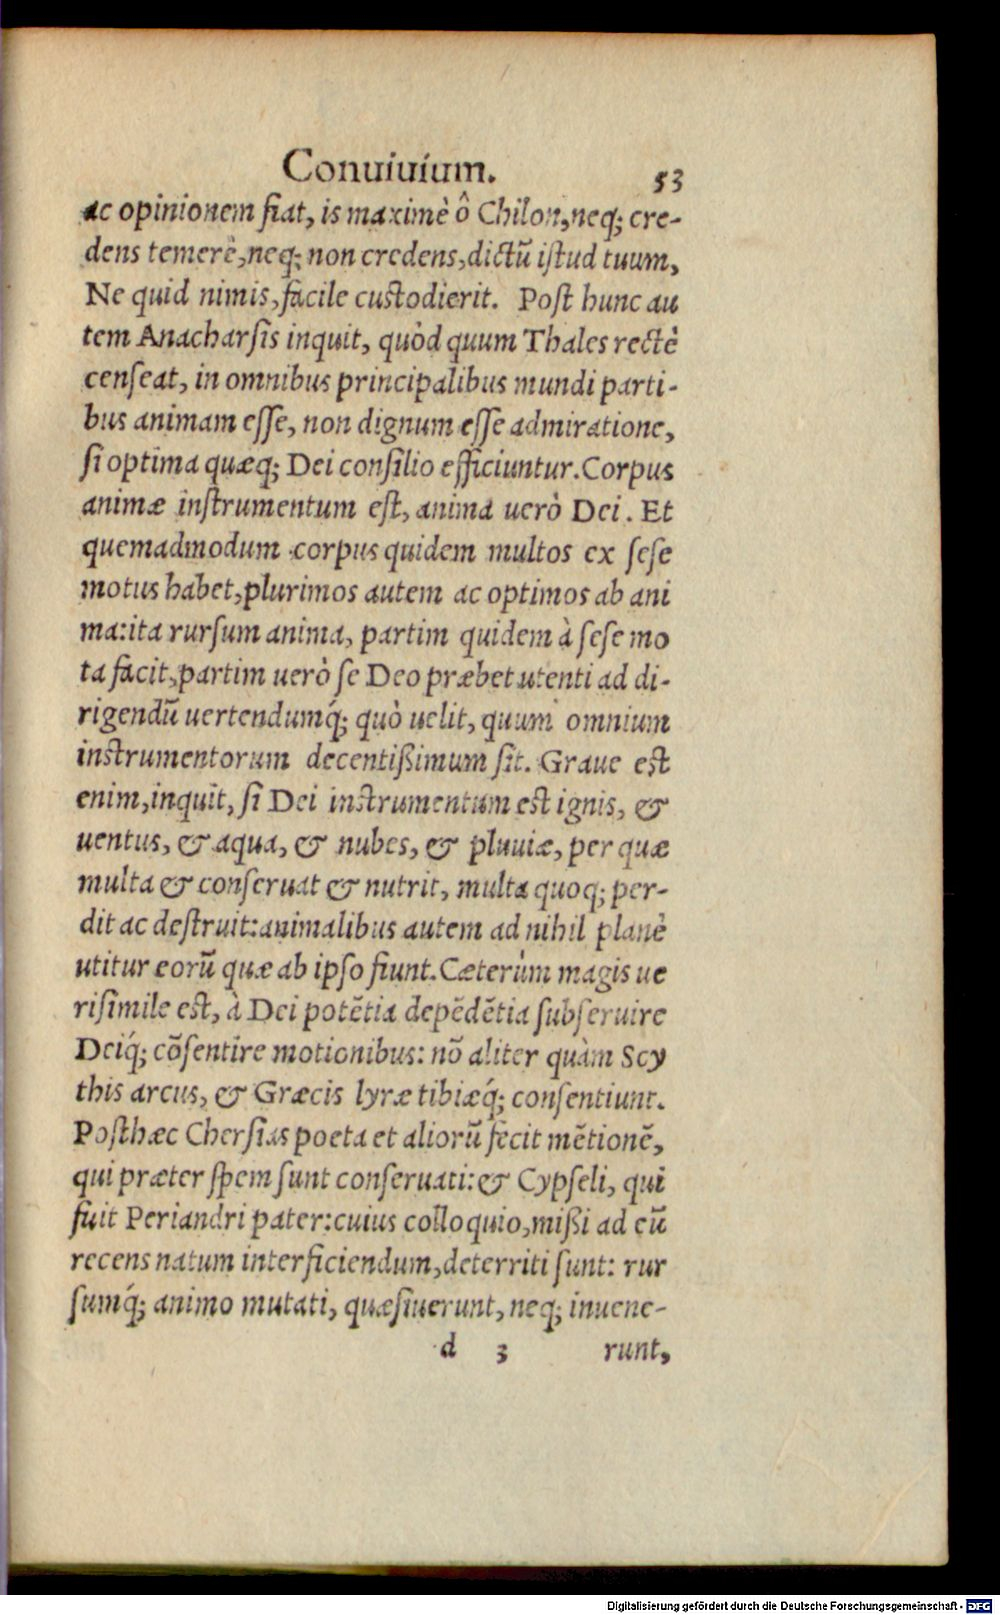 Conuiuium. 53
ac opinionem fiat, is maximè ô Chilon, neq; cre-
dens temerè, neq; non credens, dictū istud tuum,
Ne quid nimis, facile custodierit. Post hunc au
tem Anacharsis inquit, quòd quum Thales rectè
censeat, in omnibus principalibus mundi parti-
bus animam esse, non dignum esse admiratione,
si optima quæq; Dei consilio efficiuntur. Corpus
animæ instrumentum est, anima uerò Dei. Et
quemadmodum corpus quidem multos ex sese
motus habet, plurimos autem ac optimos ab ani
ma: ita rursum anima, partim quidem à sese mo
ta facit, partim uerò se Deo præbet utenti ad di-
rigendū uertendumq́; quò uelit, quum omnium
instrumentorum decentißimum sit. Graue est
enim, inquit, si Dei instrumentum est ignis, &
uentus, & aqua, & nubes, & pluuiæ, per quæ
multa & conseruat & nutrit, multa quoq; per-
dit ac destruit: animalibus autem ad nihil planè
utitur eorū quæ ab ipso fiunt. Cæterùm magis ue
risimile est, à Dei potētia depēdētia subseruire
Deiq́; cōsentire motionibus: nō aliter quàm Scy
this arcus, & Græcis lyræ tibiæq́; consentiunt.
Posthæc Chersias poeta et aliorū fecit mētionē,
qui præter spem sunt conseruati: & Cypseli, qui
fuit Periandri pater: cuius colloquio, mißi ad eū
recens natum interficiendum, deterriti sunt: rur
sumq́; animo mutati, quæsiuerunt, neq; inuene-
d 3 runt,
Digitalisierung gefördert durch die Deutsche Forschungsgemeinschaft - DFG